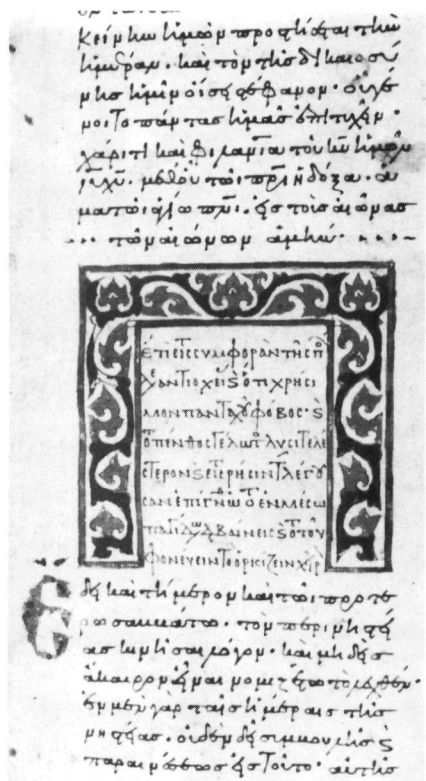 κείνην ἡμῶν προστήσεται τὴν
ἡμέραν· καὶ τὸν τῆς δικαιοσύ
νης ἡμῖν οἴσει στέφανον· οὗ γέ
νοιτο πάντας ἡμᾶς ἐπιτυχεῖν·
χάριτι καὶ φιλανία τοῦ κυ ἡμῶν
ιυ χυ· μεθ οὗ τῶι πρι ἡ δόξα· ἅ
μα τῶι ἁγίω πνι· εἰς τοὺς αἰῶνας
τῶν αἰώνων ἀμήν·
ΕΤΙ ΕΙΣ ΣΥΜΦΟΡΑΝ ΤΗΣ
ΑΝΤΙΟΧΕΙ Ϛ ΟΤΙ ΧΡΗΣΙ
ΜΟΝ ΠΑΝΤΑΧΟΥ ΦΟΒΟΣ· Ϛ
ΟΤΙ ΠΕΝΘΟΣ ΓΕΛΩΤ ΛΥΣΙΤΕΛΕ
ΣΤΕΡΟΝ Ϛ ΕΙΣ ΤΗΝ ΡΗΣΙΝ Τ ΛΕΓΟΥ
ΣΑΝ ΕΠΙΓΝΩΘ ΟΤΙ ΕΝ ΜΕΣΩ
ΠΑΓΙΔΩ ΔΙΑΒΑΙΝΕΙΣ Ϛ ΟΤΙ ΤΟΥ
ΦΟΝΕΥΕΙΝ ΤΟ ΟΡΚΙΖΕΙΝ ΧΕΙΡ
Ἔδει καὶ τήμερον καὶ τῶι προτέ
ρω σαββάτω· τὸν περὶ νηστεί
ας κινῆσαι λόγον· καὶ μηδεὶς
ἄκαιρον εἶναι νομιζέτω τὸ λεχθέν·
ἐν μὲν γὰρ ταῖς ἡμέραις τῆς
νηστείας· οὐδὲν δεῖ συμβουλῆς Ϛ
παραινέσεως εἰς τοῦτο· αὐτῆς